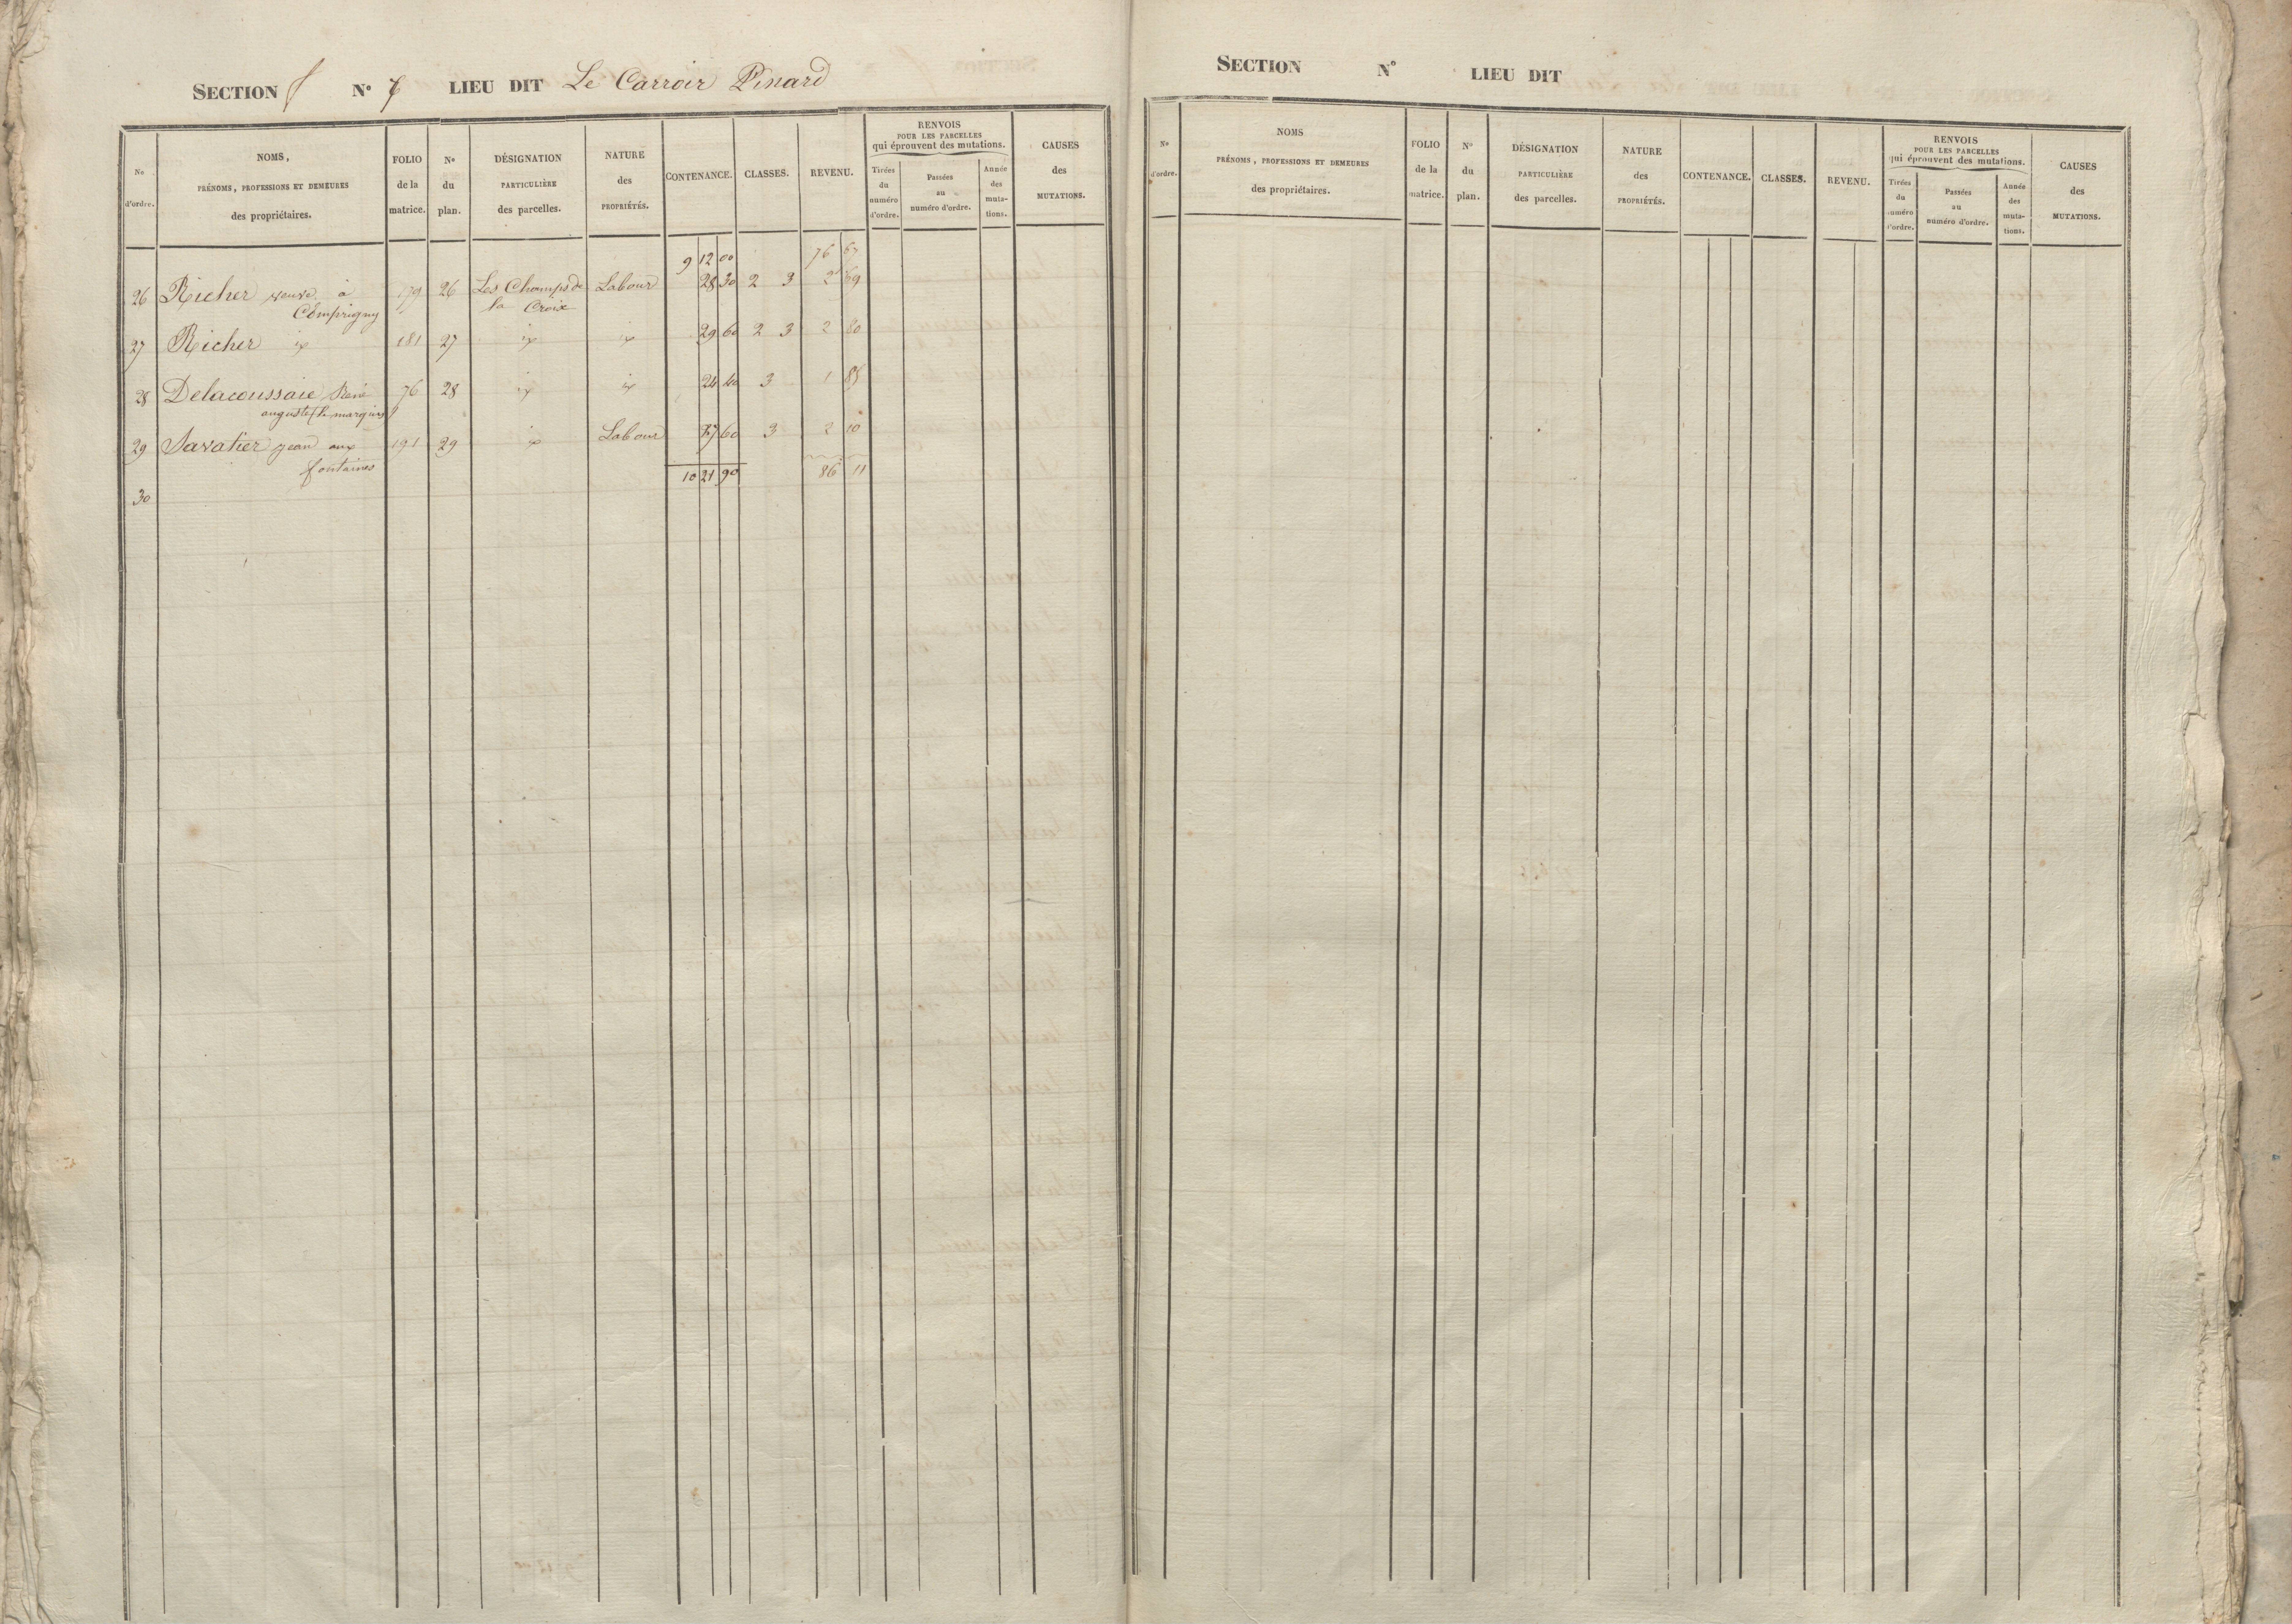 SECTION f N° 7 LIEU DIT Le Carroir Pinard
N° d'ordre.
NOMS,
PRÉNOMS, PROFESSIONS ET DEMEURES
des propriétaires.
FOLIO
de la
matrice.
N°
du
plan.
DÉSIGNATION
PARTICULIÈRE
des parcelles.
NATURE
des
PROPRIÉTÉS.
CONTENANCE.
CLASSES.
REVENU.
RENVOIS
POUR LES PARCELLES
qui éprouvent des mutations.
Tirées
du
numéro
d'ordre.
Passées
au
numéro d'ordre.
Année
des
muta-
tions.
CAUSES
des
MUTATIONS.
9 12 00 76 67
26 Richer veuve à 179 26 Les Champs de Labour 28 30 2 3 2 69
Comprigny la Croix
27 Richer id 181 27 id id 29 60 2 3 2 80
28 Delacoussaie René 76 28 id id 24 40 3 1 85
auguste (le marquis)
29 Savatier jean aux 191 29 id Labour 27 60 3 2 10
fontaines
10 21 90 86 11
30
SECTION N° LIEU DIT
N°
d'ordre.
NOMS
PRÉNOMS, PROFESSIONS ET DEMEURES
des propriétaires.
FOLIO
de la
matrice.
N°
du
plan.
DÉSIGNATION
PARTICULIÈRE
des parcelles.
NATURE
des
PROPRIÉTÉS.
CONTENANCE.
CLASSES.
REVENU.
RENVOIS
POUR LES PARCELLES
qui éprouvent des mutations.
Tirées
du
numéro
d'ordre.
Passées
au
numéro d'ordre.
Année
des
muta-
tions.
CAUSES
des
MUTATIONS.